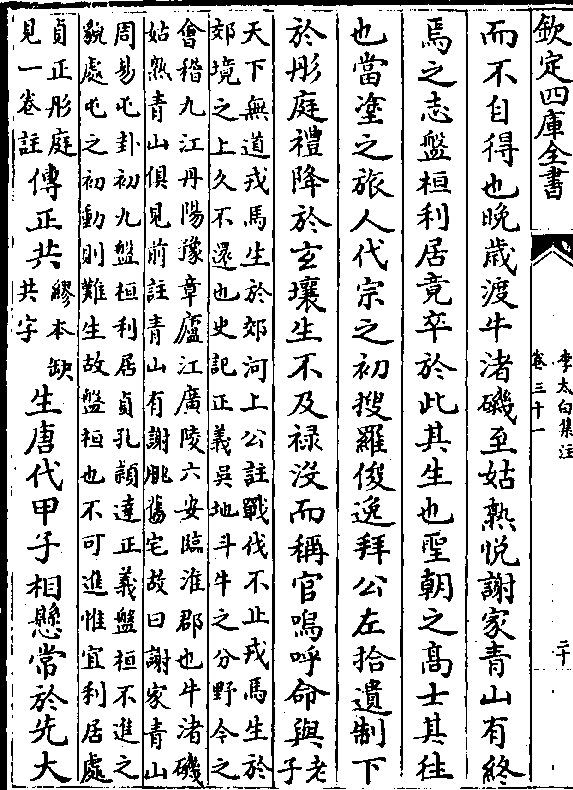 欽定四庫全書
李太白集注
卷三十一
二十
而不自得也晚歳渡牛渚磯至姑熟悦謝家青山有終
焉之志盤桓利居竟卒於此其生也聖朝之髙士其往
也當塗之旅人代宗之初搜羅俊逸拜公左拾遺制下
於彤庭禮降於玄壤生不及禄沒而稱官嗚呼命與
老子
天下無道戎馬生於郊河上公註戰伐不止戎馬生於
郊境之上久不還也史記正義吳地斗牛之分野今之
會稽九江丹陽豫章廬江廣陵六安臨淮郡也牛渚磯
姑熟青山俱見前註青山有謝朓舊宅故曰謝家青山
周易屯卦初九盤桓利居貞孔頴達正義盤桓不進之
貌處屯之初動則難生故盤桓也不可進惟宜利居處
貞正彤庭
見一卷註
傳正共
繆本缺
共字
生唐代甲子相懸常於先大